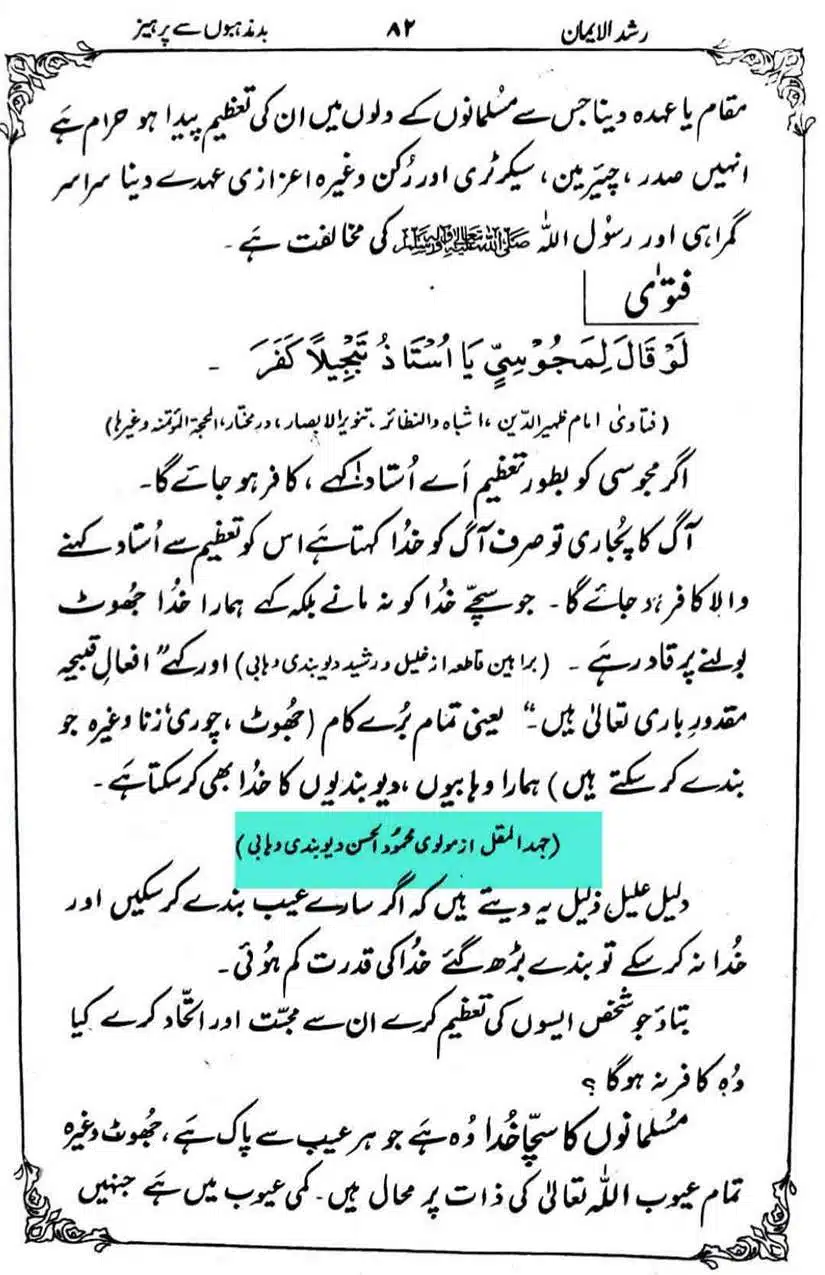 رشد الایمان ۸۲ بدمذہبوں سے پرہیز
مقام یا عہدہ دینا جس سے مُسلمانوں کے دلوں میں ان کی تعظیم پیدا ہو حرام ہے
انہیں صدر ، چیئرمین ، سیکرٹری اور رُکن وغیرہ اعزازی عہدے دینا سراسر
گمراہی اور رسوُل اللہ صلی اللہ تعالیٰ علیہ وآلہ وسلم کی مخالفت ہے ۔
فتوٰی
لَوْ قَالَ لِمَجُوْسِیٍّ یَا اُسْتَاذُ تَبْجِیْلًا کَفَرَ ۔
( فتاویٰ امام ظہیر الدّین ، اشباہ والنظائر ، تنویر الابصار ، درمختار ، المحجۃ المؤتمنہ وغیرہا )
اگر مجوسی کو بطور تعظیم اَے اُستاد کہے ، کافر ہو جائے گا۔
آگ کا پُجاری تو صرف آگ کو خدُا کہتا ہے اس کو تعظیم سے اُستاد کہنے
والا کافر ہو جائے گا ۔ جو سچّے خدُا کو نہ مانے بلکہ کہے ہمارا خدُا جھُوٹ
بولنے پر قادر ہے ۔ ( براہین قاطعہ از خلیل و رشید دیوبندی وہابی ) اور کہے ”افعالِ قبیحہ
مقدورِ باری تعالیٰ ہیں ۔“ یعنی تمام بُرے کام ( جھُوٹ ، چوری ، زنا وغیرہ جو
بندے کر سکتے ہیں ) ہمارا وہابیوں ، دیوبندیوں کا خدُا بھی کر سکتا ہے ۔
( جہد المقل از مولوی محموُد الحسن دیوبندی وہابی )
دلیل علیل ذلیل یہ دیتے ہیں کہ اگر سارے عیب بندے کر سکیں اور
خدُا نہ کر سکے تو بندے بڑھ گئے خدُا کی قدرت کم ہوُئی ۔
بتاؤ جو شخص ایسوں کی تعظیم کرے ان سے محبّت اور اتحّاد کرے کیا
وُہ کافر نہ ہوگا ؟
مُسلمانوں کا سچّا خدُا وُہ ہے جو ہر عیب سے پاک ہے ، جھُوٹ وغیرہ
تمام عیوب اللہ تعالیٰ کی ذات پر محال ہیں ۔ کمی عیوب میں ہے جنہیں